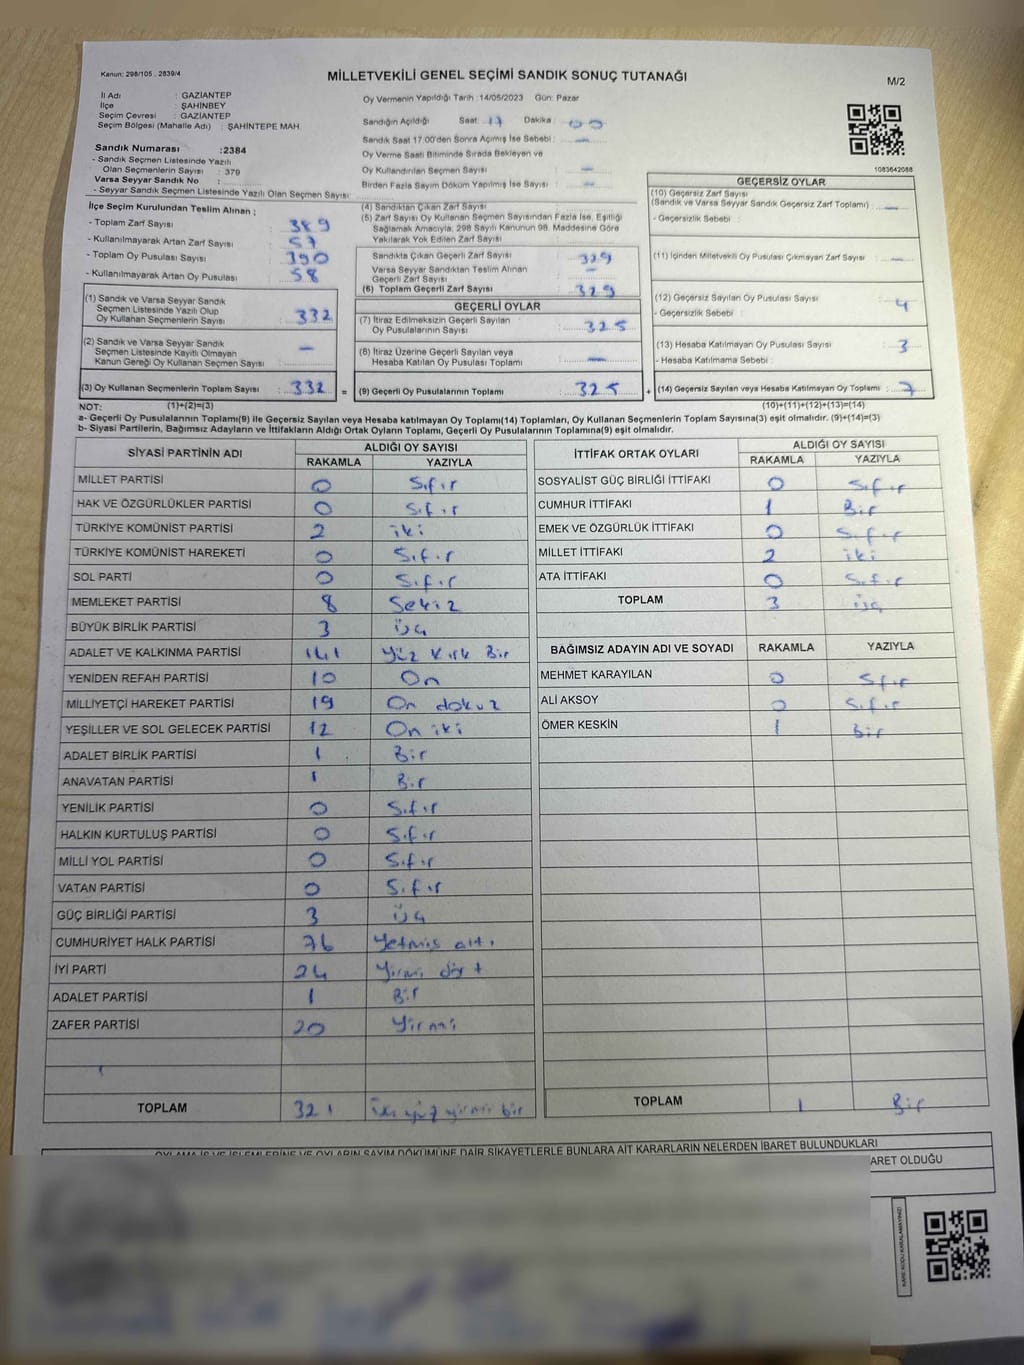 Kanun: 298/105 , 2839/4
MİLLETVEKİLİ GENEL SEÇİMİ SANDIK SONUÇ TUTANAĞI
M/2
İl Adı : GAZİANTEP
İlçe : ŞAHİNBEY
Seçim Çevresi : GAZİANTEP
Seçim Bölgesi (Mahalle Adı) : ŞAHİNTEPE MAH.
Oy Vermenin Yapıldığı Tarih : 14/05/2023 Gün: Pazar
Sandığın Açıldığı Saat : 17 Dakika : 00
Sandık Saat 17.00'den Sonra Açımış İse Sebebi : —
Oy Verme Saati Bitiminde Sırada Bekleyen ve
Oy Kullandırılan Seçmen Sayısı : —
Birden Fazla Sayım Döküm Yapılmış İse Sayısı : —
1083642088
Sandık Numarası :2384
- Sandık Seçmen Listesinde Yazılı
Olan Seçmenlerin Sayısı : 379
Varsa Seyyar Sandık No :
- Seyyar Sandık Seçmen Listesinde Yazılı Olan Seçmen Sayısı:
İlçe Seçim Kurulundan Teslim Alınan ;
- Toplam Zarf Sayısı : 389
- Kullanılmayarak Artan Zarf Sayısı : 57
- Toplam Oy Pusulası Sayısı : 390
- Kullanılmayarak Artan Oy Pusulası : 58
(1) Sandık ve Varsa Seyyar Sandık
Seçmen Listesinde Yazılı Olup
Oy Kullanan Seçmenlerin Sayısı : 332
(2) Sandık ve Varsa Seyyar Sandık
Seçmen Listesinde Kayıtlı Olmayan
Kanun Gereği Oy Kullanan Seçmen Sayısı : —
(3) Oy Kullanan Seçmenlerin Toplam Sayısı : 332 =
(4) Sandıktan Çıkan Zarf Sayısı :
(5) Zarf Sayısı Oy Kullanan Seçmen Sayısından Fazla İse, Eşitliği
Sağlamak Amacıyla, 298 Sayılı Kanunun 98. Maddesine Göre
Yakılarak Yok Edilen Zarf Sayısı :
Sandıkta Çıkan Geçerli Zarf Sayısı : 329
Varsa Seyyar Sandıktan Teslim Alınan
Geçerli Zarf Sayısı : —
(6) Toplam Geçerli Zarf Sayısı : 329
GEÇERLİ OYLAR
(7) İtiraz Edilmeksizin Geçerli Sayılan
Oy Pusulalarının Sayısı : 325
(8) İtiraz Üzerine Geçerli Sayılan veya
Hesaba Katılan Oy Pusulası Toplamı : —
(9) Geçerli Oy Pusulalarının Toplamı : 325 +
GEÇERSİZ OYLAR
(10) Geçersiz Zarf Sayısı
(Sandık ve Varsa Seyyar Sandık Geçersiz Zarf Toplamı) : —
- Geçersizlik Sebebi :
(11) İçinden Milletvekili Oy Pusulası Çıkmayan Zarf Sayısı : —
(12) Geçersiz Sayılan Oy Pusulası Sayısı : 4
- Geçersizlik Sebebi :
(13) Hesaba Katılmayan Oy Pusulası Sayısı : 3
- Hesaba Katılmama Sebebi :
(14) Geçersiz Sayılan veya Hesaba Katılmayan Oy Toplamı : 7
NOT: (1)+(2)=(3) (10)+(11)+(12)+(13)=(14)
a- Geçerli Oy Pusulalarının Toplamı(9) ile Geçersiz Sayılan veya Hesaba katılmayan Oy Toplamı(14) Toplamları, Oy Kullanan Seçmenlerin Toplam Sayısına(3) eşit olmalıdır. (9)+(14)=(3)
b- Siyasi Partilerin, Bağımsız Adayların ve İttifakların Aldığı Ortak Oyların Toplamı, Geçerli Oy Pusulalarının Toplamına(9) eşit olmalıdır.
SİYASİ PARTİNİN ADI ALDIĞI OY SAYISI
RAKAMLA YAZIYLA
MİLLET PARTİSİ 0 Sıfır
HAK VE ÖZGÜRLÜKLER PARTİSİ 0 Sıfır
TÜRKİYE KOMÜNİST PARTİSİ 2 iki
TÜRKİYE KOMÜNİST HAREKETİ 0 Sıfır
SOL PARTİ 0 Sıfır
MEMLEKET PARTİSİ 8 Sekiz
BÜYÜK BİRLİK PARTİSİ 3 üç
ADALET VE KALKINMA PARTİSİ 141 Yüz Kırk Bir
YENİDEN REFAH PARTİSİ 10 On
MİLLİYETÇİ HAREKET PARTİSİ 19 On dokuz
YEŞİLLER VE SOL GELECEK PARTİSİ 12 On iki
ADALET BİRLİK PARTİSİ 1 Bir
ANAVATAN PARTİSİ 1 Bir
YENİLİK PARTİSİ 0 Sıfır
HALKIN KURTULUŞ PARTİSİ 0 Sıfır
MİLLİ YOL PARTİSİ 0 Sıfır
VATAN PARTİSİ 0 Sıfır
GÜÇ BİRLİĞİ PARTİSİ 3 üç
CUMHURİYET HALK PARTİSİ 76 Yetmiş altı
İYİ PARTİ 24 Yirmi dört
ADALET PARTİSİ 1 Bir
ZAFER PARTİSİ 20 Yirmi
TOPLAM 321 yüz yirmi bir
İTTİFAK ORTAK OYLARI ALDIĞI OY SAYISI
RAKAMLA YAZIYLA
SOSYALİST GÜÇ BİRLİĞİ İTTİFAKI 0 Sıfır
CUMHUR İTTİFAKI 1 Bir
EMEK VE ÖZGÜRLÜK İTTİFAKI 0 Sıfır
MİLLET İTTİFAKI 2 iki
ATA İTTİFAKI 0 Sıfır
TOPLAM 3 üç
BAĞIMSIZ ADAYIN ADI VE SOYADI RAKAMLA YAZIYLA
MEHMET KARAYILAN 0 Sıfır
ALİ AKSOY 0 Sıfır
ÖMER KESKİN 1 Bir
TOPLAM 1 Bir
OYLAMA İŞ VE İŞLEMLERİNE VE OYLARIN SAYIM DÖKÜMÜNE DAİR ŞİKAYETLERLE BUNLARA AİT KARARLARIN NELERDEN İBARET BULUNDUKLARI
ARET OLDUĞU